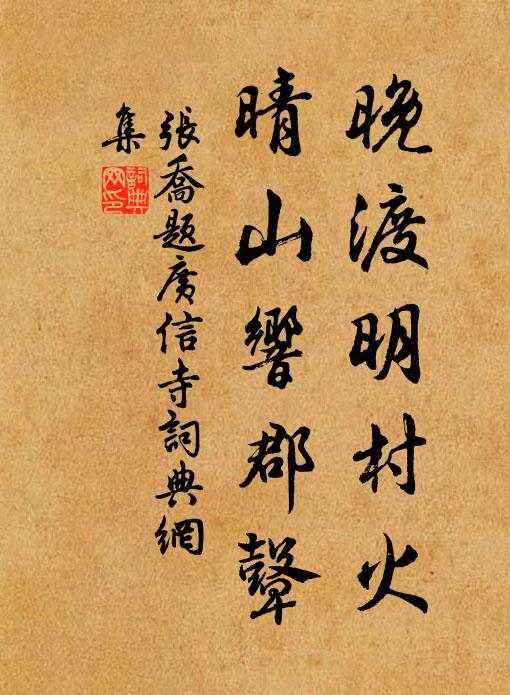 晚渡明村火
晴山響郡鼙
張喬題廣信寺詞典網
集
詞典網印